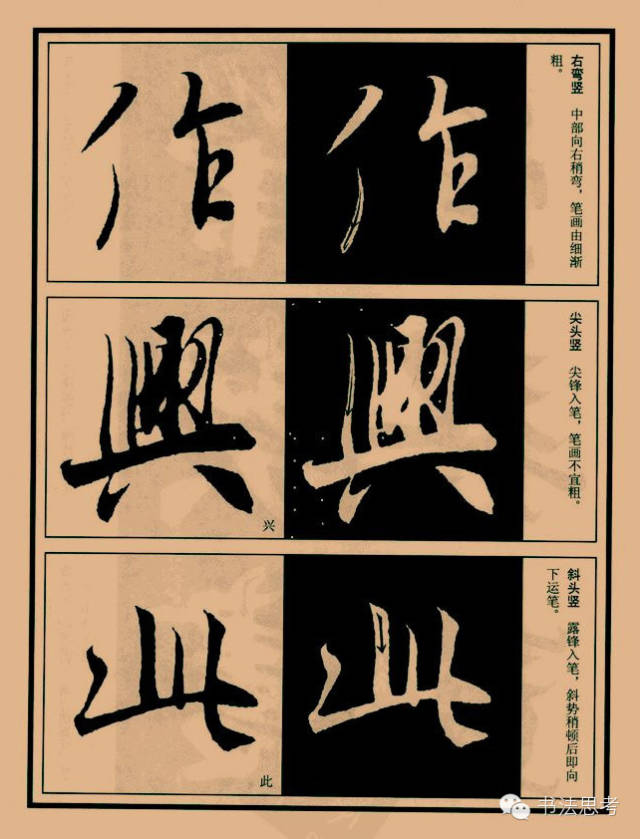 右弯竖 中部向右稍弯，笔画由细渐
粗。
作
作
尖头竖 尖锋入笔，笔画不宜粗。
興
興
兴
斜头竖 露锋入笔，斜势稍顿后即向
下运笔。
此
此
此
书法思考